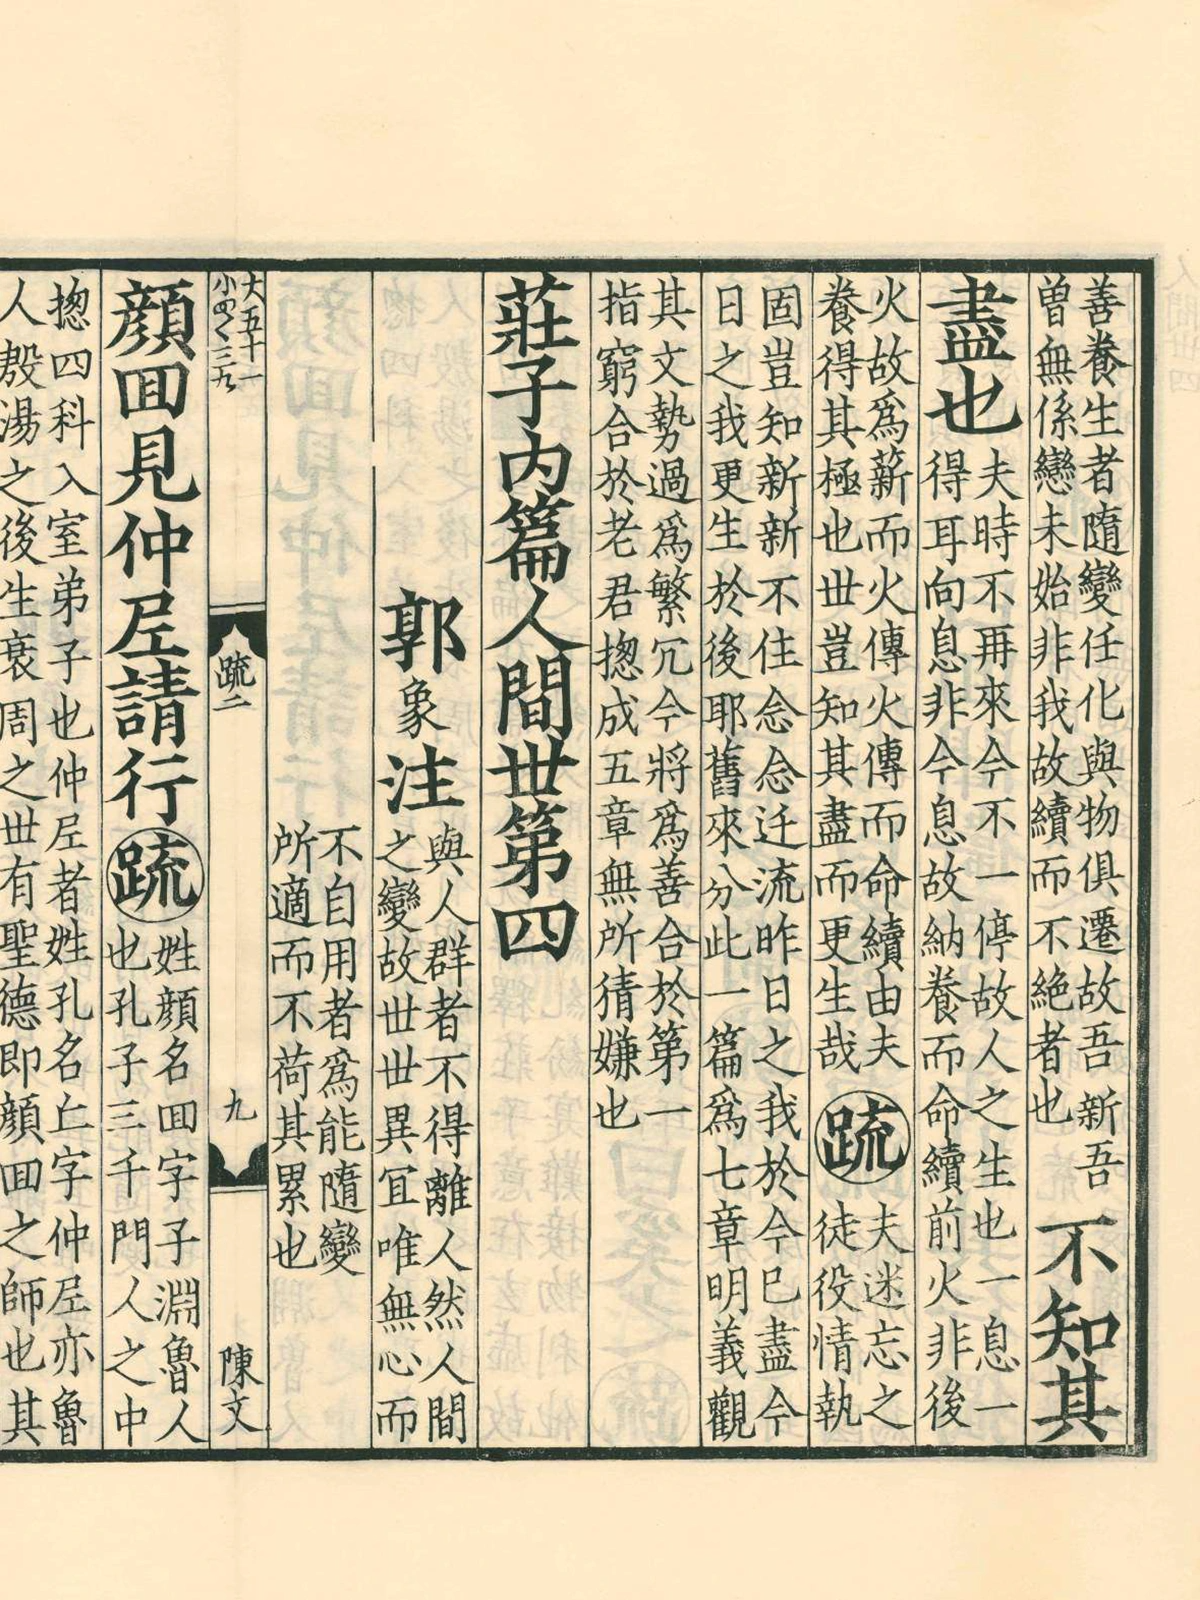 善養生者隨變任化與物俱遷故吾新吾
曽無係戀未始非我故續而不絶者也
不知其
盡也
夫時不再來今不一停故人之生也一息一
得耳向息非今息故納養而命續前火非後
火故爲薪而火傳火傳而命續由夫
養得其極也世豈知其盡而更生哉
疏
夫迷忘之
徒役情執
固豈知新新不住念念迁流昨日之我於今已盡今
日之我更生於後耶舊來分此一篇爲七章明義觀
其文勢過爲繁冗今將爲善合於第一
指窮合於老君揔成五章無所猜嫌也
莊子内篇人間世第四
郭象注
與人群者不得離人然人間
之變故世世異冝唯無心而
不自用者爲能隨變
所適而不荷其累也
大五十一
疏二
九
陳文
顔囬見仲𡰥請行
疏
姓顔名囬字子淵魯人
也孔子三千門人之中
揔四科入室弟子也仲𡰥者姓孔名丘字仲𡰥亦魯
人殷湯之後生衰周之世有聖德即顔囬之師也其